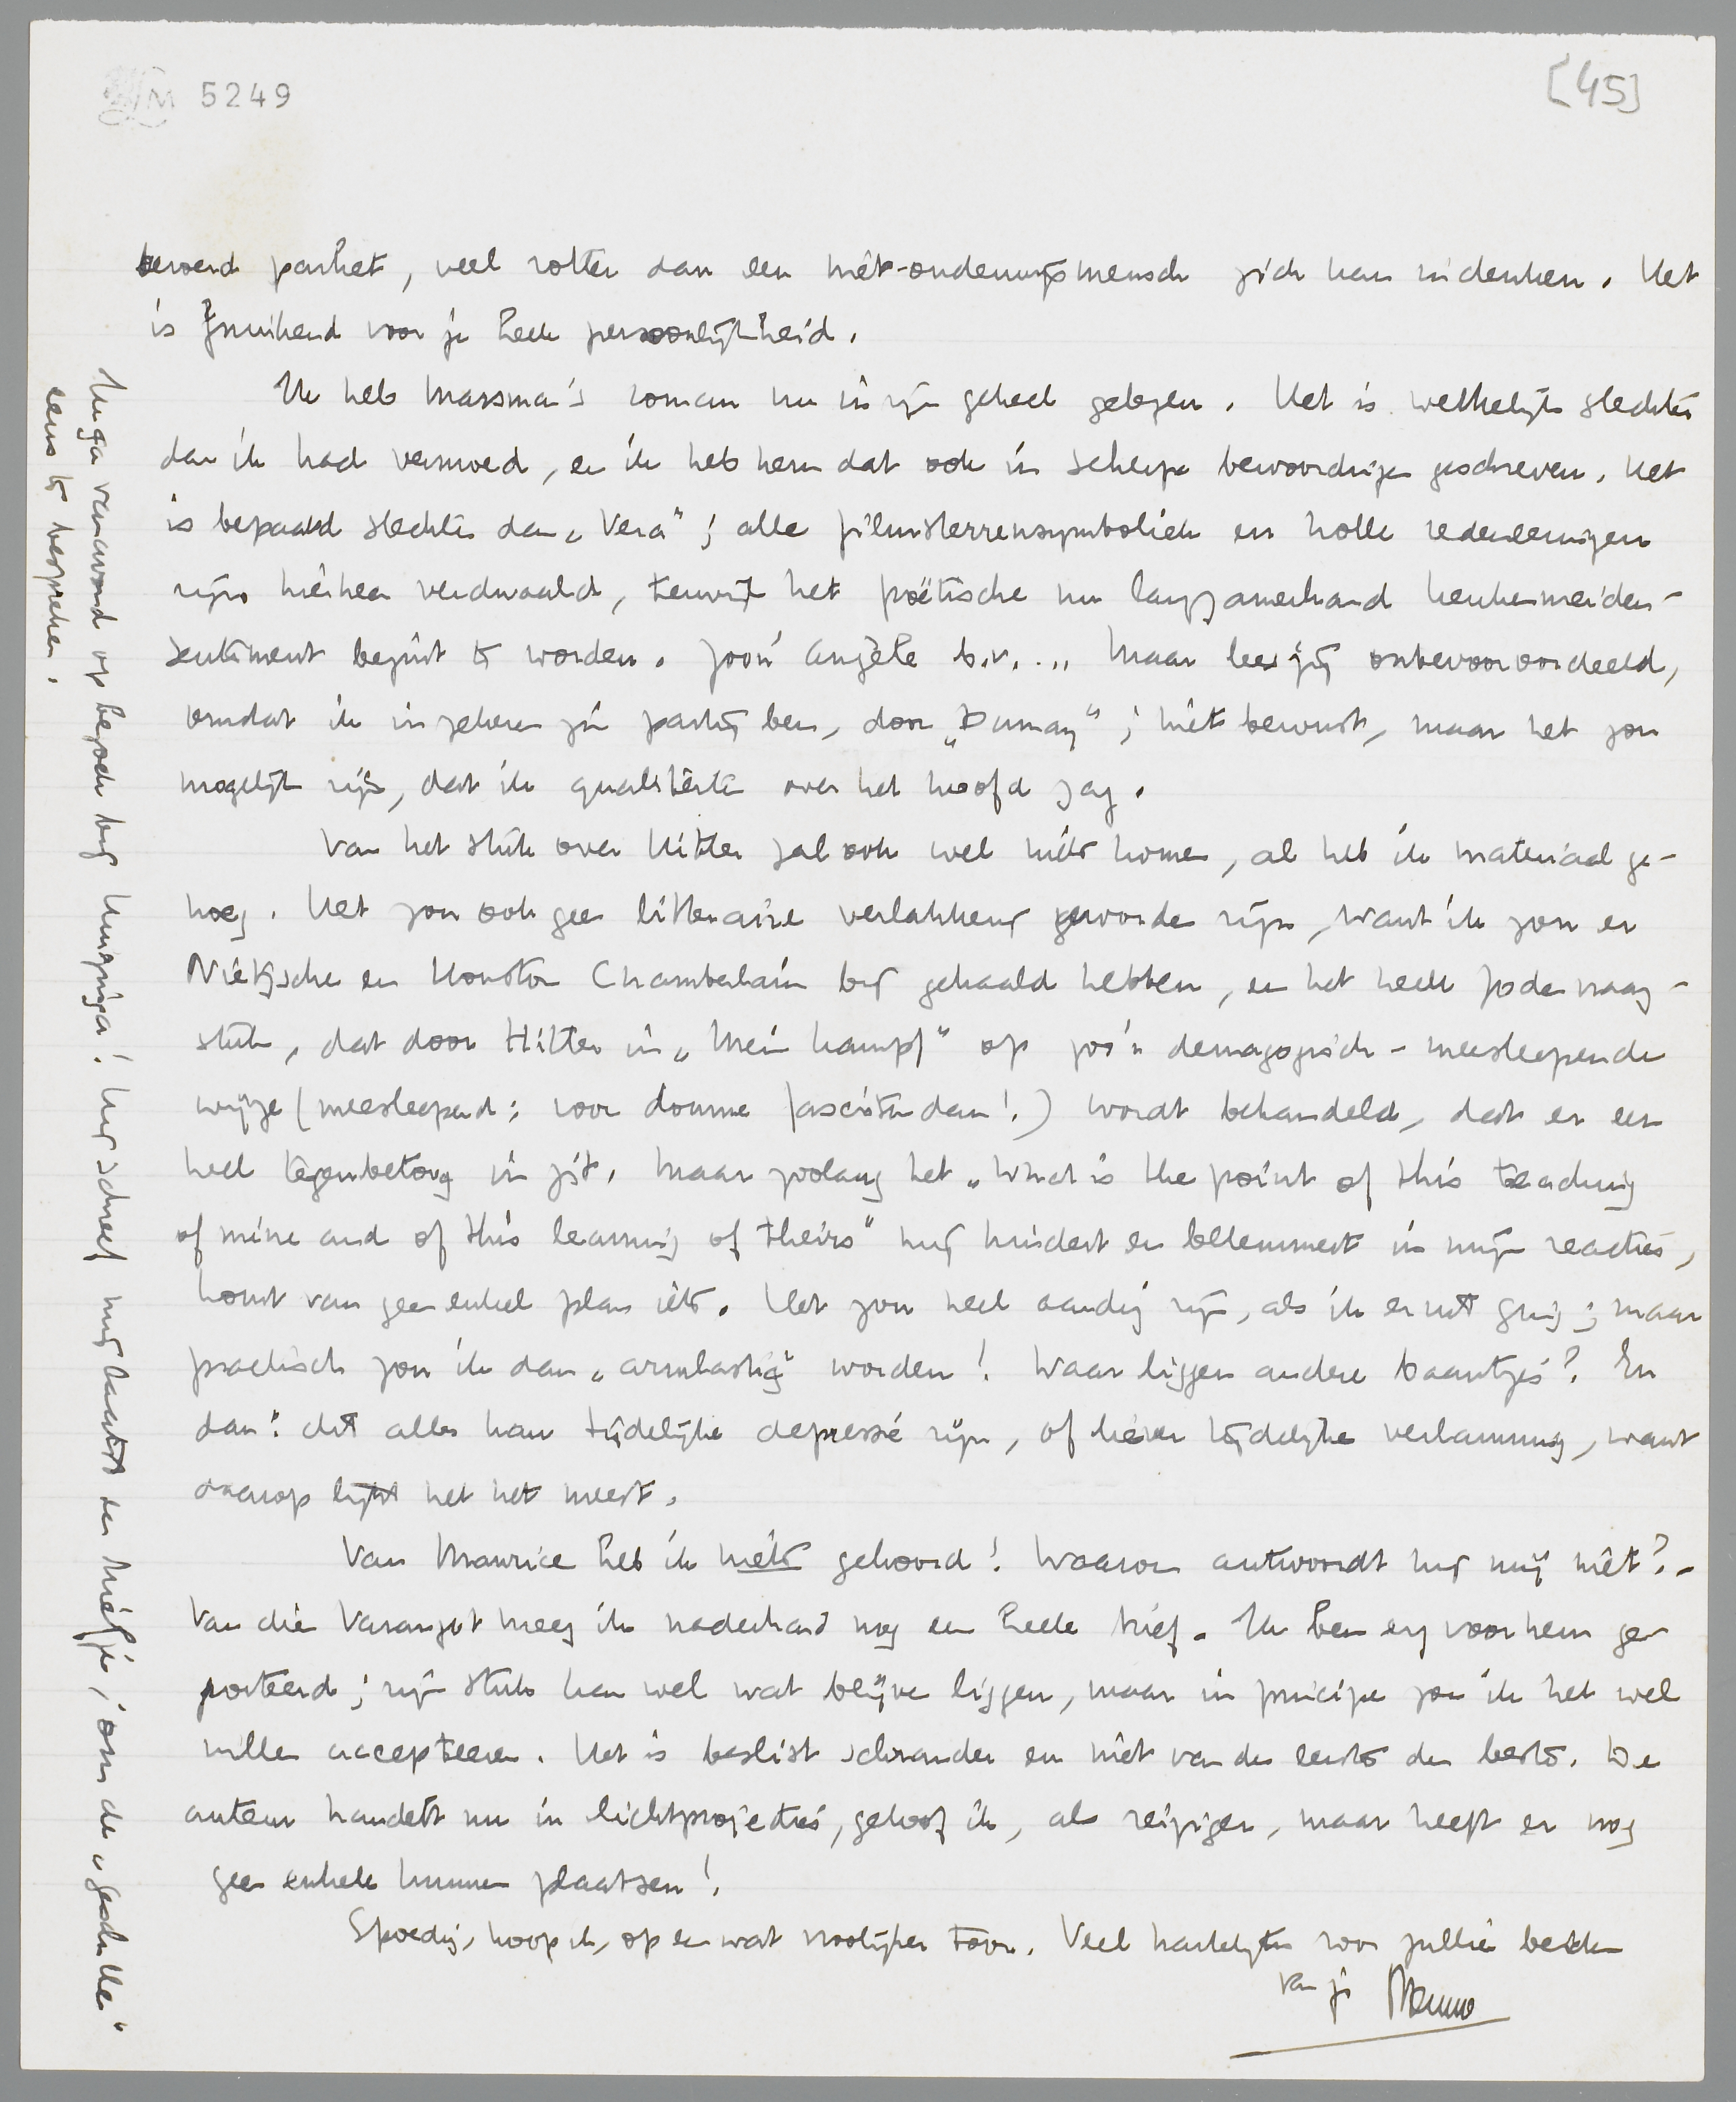 LM 5249
[45]
beroerd parket, veel rotter dan een niet-onderwijsmensch zich kan indenken. Het
is fnuikend voor je heele persoonlijkheid.
Ik heb Marsman's roman nu in zijn geheel gelezen. Het is werkelijk slechter
dan ik had vermoed, en ik heb hem dat ook in scherpe bewoordingen geschreven. Het
is bepaald slechter dan „Vera"; alle filmsterrensymboliek en holle redeneeringen
zijn hierheen verdwaald, terwijl het poëtische nu langzamerhand keukenmeiden-
sentiment begint te worden. Zoo'n Angèle b.v.... Maar lees jij onbevooroordeeld,
omdat ik in zekeren zin partij ben, door „Dumay"; niet bewust, maar het zou
mogelijk zijn, dat ik qualiteiten over het hoofd zag.
Van het stuk over Hitler zal ook wel niets komen, al heb ik materiaal ge-
noeg. Het zou ook geen litteraire verlakkerij geworden zijn, want ik zou er
Nietzsche en Houston Chamberlain bij gehaald hebben, en het heele Jodenvraag-
stuk, dat door Hitler in „Mein Kampf" op zoo'n demagogisch-meesleepende
wijze (meesleepend: voor domme fascisten dan!) wordt behandeld, dat er een
heel tegenbetoog in zit. Maar zoolang het „What is the point of this teaching
of mine and of this learning of theirs" mij hindert en belemmert in mijn reacties,
komt van geen enkel plan iets. Het zou heel aardig zijn, als ik er uit ging; maar
practisch zou ik dan „armlastig" worden! Waar liggen andere baantjes? En
dan: dit alles kan tijdelijke depressie zijn, of liever tijdelijke verlamming, want
daarop lijkt het het meest.
Van Maurice heb ik niets gehoord! Waarom antwoordt hij mij niet? -
Van die Varangot kreeg ik naderhand nog een heele brief. Ik ben erg voor hem ge-
porteerd; zijn stuk kan wel wat blijven liggen, maar in principe zou ik het wel
willen accepteeren. Het is beslist schrander en niet van de eerste de beste. De
auteur handelt nu in lichtprojecties, geloof ik, als reiziger, maar heeft er nog
geen enkele kunnen plaatsen!
Spoedig, hoop ik, op een wat vroolijker toon. Veel hartelijks voor jullie beiden
van je Menno
Ik ga vanavond op bezoek bij Huizinga! Hij schreef mij laatst een briefje, om de „geschillen"
eens te bespreken.